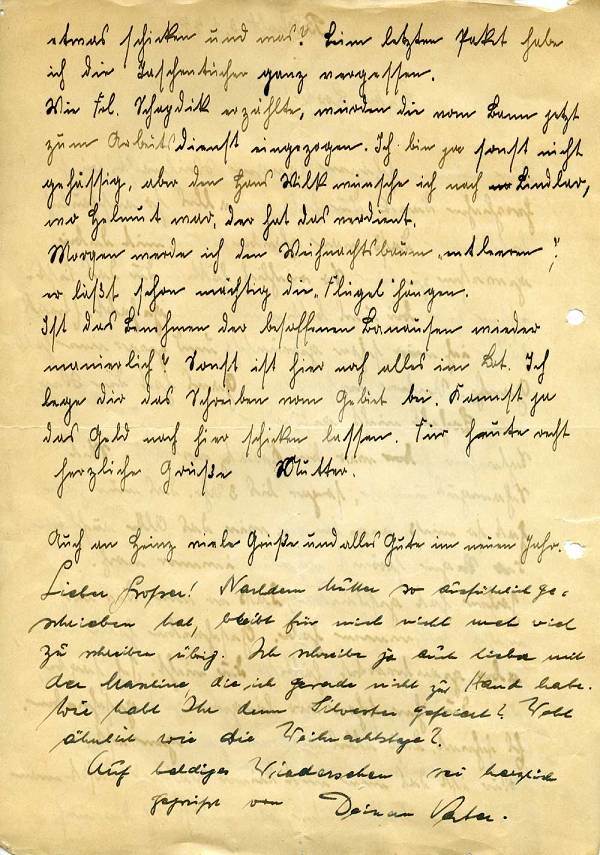 etwas schicken und was? Beim letzten Paket habe
ich die Taschentücher ganz vergessen.
Wie Frl. erzählte, würden die vom Bann jetzt
zum Arbeitsdienst eingezogen. Ich bin ja sonst nicht
gehässig, aber den Hans Wilk wünsche ich nach Lindlar,
wo Helmut war, der hat das verdient.
Morgen werde ich den Weihnachtsbaum „entleeren“,
er läßt schon mächtig die „Flügel“ hängen.
Ist das Benehmen der besoffenen Banausen wieder
manierlich? Sonst ist hier noch alles im Lot. Ich
lege dir das Schreiben vom Gebiet bei. Kannst ja
das Geld nach hier schicken lassen. Für heute recht
herzliche Grüße Mutter.
Auch an Heinz viele Grüße und alles Gute im neuen Jahr.
Lieber Großer! Nachdem Mutter so ausführlich ge-
schrieben hat, bleibt für mich nicht mehr viel
zu schreiben übrig. Ich schreibe ja auch lieber mit
der Maschine, die ich gerade nicht zur Hand habe.
Wie habt Ihr denn Silvester gefeiert? Wohl
ähnlich wie die Weihnachtstage?
Auf baldiges Wiedersehen sei herzlich
gegrüßt von Deinem Vater.